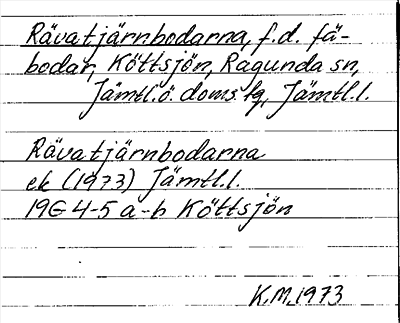 Rävatjärnbodarna, f.d. fä-
bodar, Köttsjön, Ragunda sn,
Jämtl.ö. doms. lg, Jämtl.l.
Rävatjärnbodarna
ek (1973) Jämtl.l.
19G 4-5 a-b Köttsjön
K.M.1973